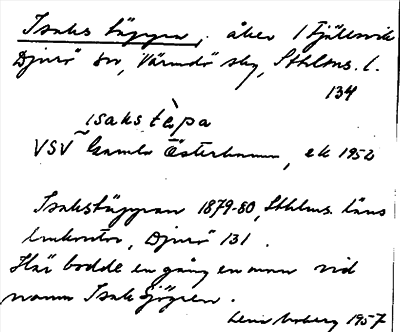 Isaks täppan, åker i Fjällsvik
Djurö sn, Värmdö skg, Sthlms. l.
134
isaks tèpa
VSV Gamla Österhamn, ek 1952
Isakstäppan 1879-80, Sthlms läns
Djurö 131.
Här bodde en gång en man vid
namn Isak Sjögren.
1957